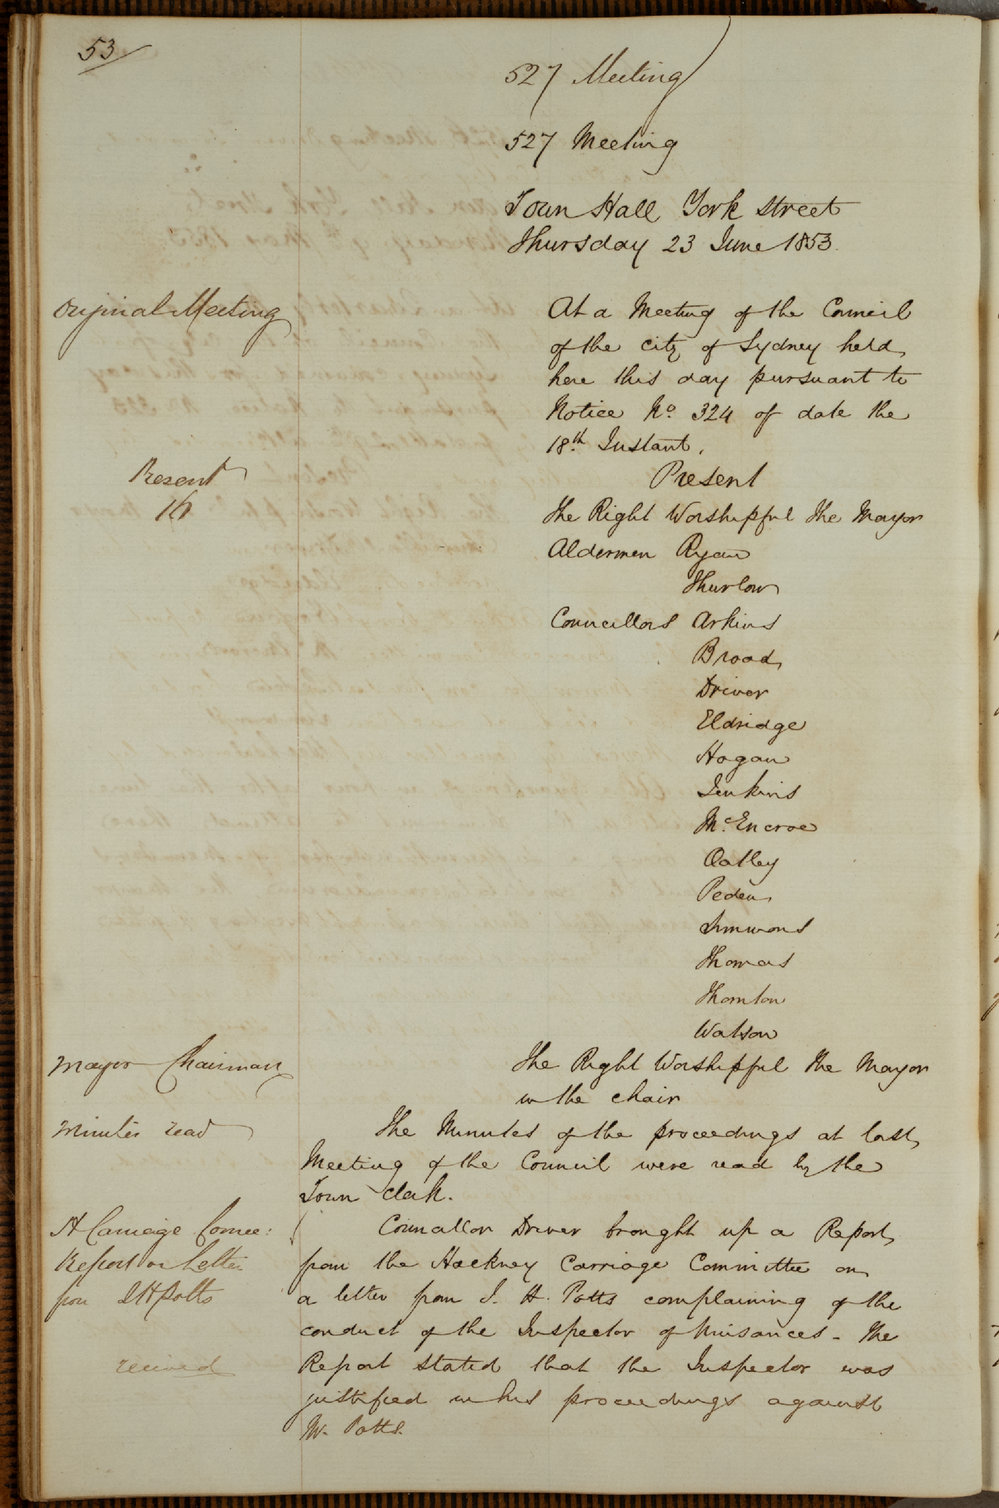 53
527 Meeting
527 Meeting
Town Hall York Street
Thursday 23 June 1853.
Original Meeting
At a Meeting of the Council
of the city of Sydney held
here this day pursuant to
Notice No. 324 of date the
18th Instant.
Present
16
Present
The Right Worshipful The Mayor
Aldermen Ryan
Thurlow
Councillors Arkins
Broad
Driver
Eldridge
Hogan
Jenkins
McEncroe
Oatley
Peden
Simmons
Thomas
Thornton
Watson
Mayor Chairman
The Right Worshipful The Mayor
in the chair
Minutes read
The Minutes of the proceedings at last
Meeting of the Council were read by the
Town Clerk.
H Carriage Comee:
Report on Letter
from J H Potts
received
Councillor Driver brought up a Report
from the Hackney Carriage Committee on
a letter from J. H. Potts complaining of the
conduct of the Inspector of Nuisances - The
Report stated that the Inspector was
justified in his proceedings against
Mr. Potts.